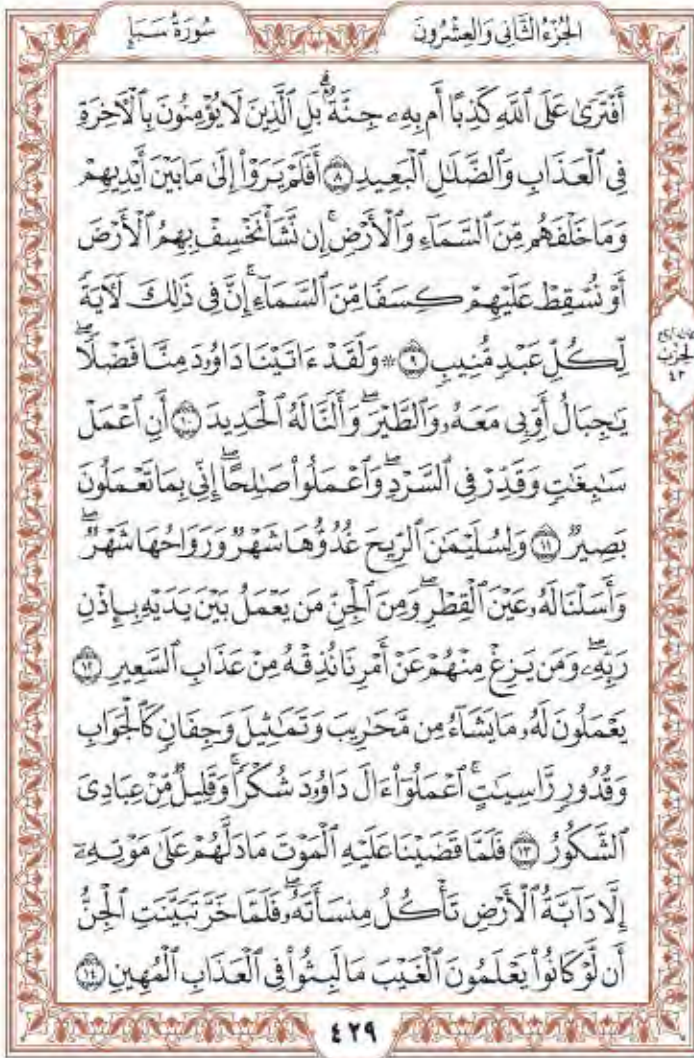 الجُزْءُ الثَّانِي وَالعِشْرُونَ
سُورَةُ سَبَإٍ
أَفْتَرَىٰ عَلَى ٱللَّهِ كَذِبًا أَم بِهِۦ جِنَّةٌۢ ۗ بَلِ ٱلَّذِينَ لَا يُؤْمِنُونَ بِٱلْأٓخِرَةِ
فِى ٱلْعَذَابِ وَٱلضَّلَٰلِ ٱلْبَعِيدِ ٨ أَفَلَمْ يَرَوْا۟ إِلَىٰ مَا بَيْنَ أَيْدِيهِمْ
وَمَا خَلْفَهُم مِّنَ ٱلسَّمَآءِ وَٱلْأَرْضِ ۚ إِن نَّشَأْ نَخْسِفْ بِهِمُ ٱلْأَرْضَ
أَوْ نُسْقِطْ عَلَيْهِمْ كِسَفًا مِّنَ ٱلسَّمَآءِ ۚ إِنَّ فِى ذَٰلِكَ لَأٓيَةً
لِّكُلِّ عَبْدٍ مُّنِيبٍ ٩ ۞ وَلَقَدْ ءَاتَيْنَا دَاوُۥدَ مِنَّا فَضْلًا ۖ
يَٰجِبَالُ أَوِّبِى مَعَهُۥ وَٱلطَّيْرَ ۖ وَأَلَنَّا لَهُ ٱلْحَدِيدَ ١٠ أَنِ ٱعْمَلْ
سَٰبِغَٰتٍ وَقَدِّرْ فِى ٱلسَّرْدِ ۖ وَٱعْمَلُوا۟ صَٰلِحًا ۖ إِنِّى بِمَا تَعْمَلُونَ
بَصِيرٌ ١١ وَلِسُلَيْمَٰنَ ٱلرِّيحَ غُدُوُّهَا شَهْرٌ وَرَوَاحُهَا شَهْرٌ ۖ
وَأَسَلْنَا لَهُۥ عَيْنَ ٱلْقِطْرِ ۖ وَمِنَ ٱلْجِنِّ مَن يَعْمَلُ بَيْنَ يَدَيْهِ بِإِذْنِ
رَبِّهِۦ ۖ وَمَن يَزِغْ مِنْهُمْ عَنْ أَمْرِنَا نُذِقْهُ مِنْ عَذَابِ ٱلسَّعِيرِ ١٢
يَعْمَلُونَ لَهُۥ مَا يَشَآءُ مِن مَّحَٰرِيبَ وَتَمَٰثِيلَ وَجِفَانٍ كَٱلْجَوَابِ
وَقُدُورٍ رَّاسِيَٰتٍ ۚ ٱعْمَلُوٓا۟ ءَالَ دَاوُۥدَ شُكْرًا ۚ وَقَلِيلٌ مِّنْ عِبَادِىَ
ٱلشَّكُورُ ١٣ فَلَمَّا قَضَيْنَا عَلَيْهِ ٱلْمَوْتَ مَا دَلَّهُمْ عَلَىٰ مَوْتِهِۦٓ
إِلَّا دَآبَّةُ ٱلْأَرْضِ تَأْكُلُ مِنسَأَتَهُۥ ۖ فَلَمَّا خَرَّ تَبَيَّنَتِ ٱلْجِنُّ
أَن لَّوْ كَانُوا۟ يَعْلَمُونَ ٱلْغَيْبَ مَا لَبِثُوا۟ فِى ٱلْعَذَابِ ٱلْمُهِينِ ١٤
الحِزْب
٤٣
٤٢٩